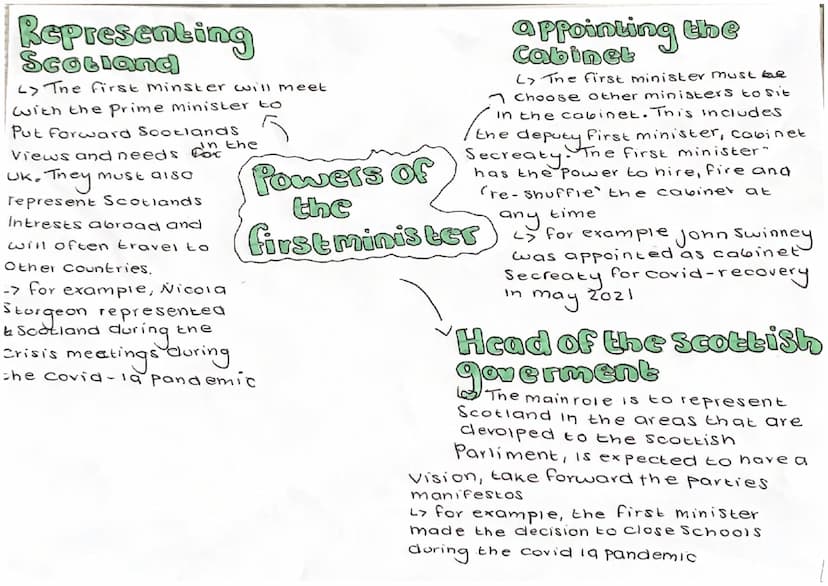 Powers of
the
first minister
Representing
Scotland
↳ The first minster will meet
with the prime minister to
Put forward Scotlands
views and needs in the
UK. They must also
represent Scotlands
Intrests abroad and
will often travel to
Other countries.
-> for example, Nicola
Sturgeon represented
Scotland during the
crisis meetings during
the covid-19 pandemic
appointing the
cabinet
↳ The first minister must
choose other ministers to sit
in the cabinet. This includes
the deputy first minister, cabinet
Secreaty. The first minister
has the power to hire, fire and
're-shuffle' the cabinet at
any time
↳ for example John Swinney
was appointed as cabinet
Secreaty for covid-recovery
in may 2021
Head of the scottish
goverment
↳ The main role is to represent
Scotland in the areas that are
devolped to the scottish
Parliment, is expected to have a
vision, take forward the parties
manifestos
↳ for example, the first minister
made the decision to close schools
during the covid 19 pandemic